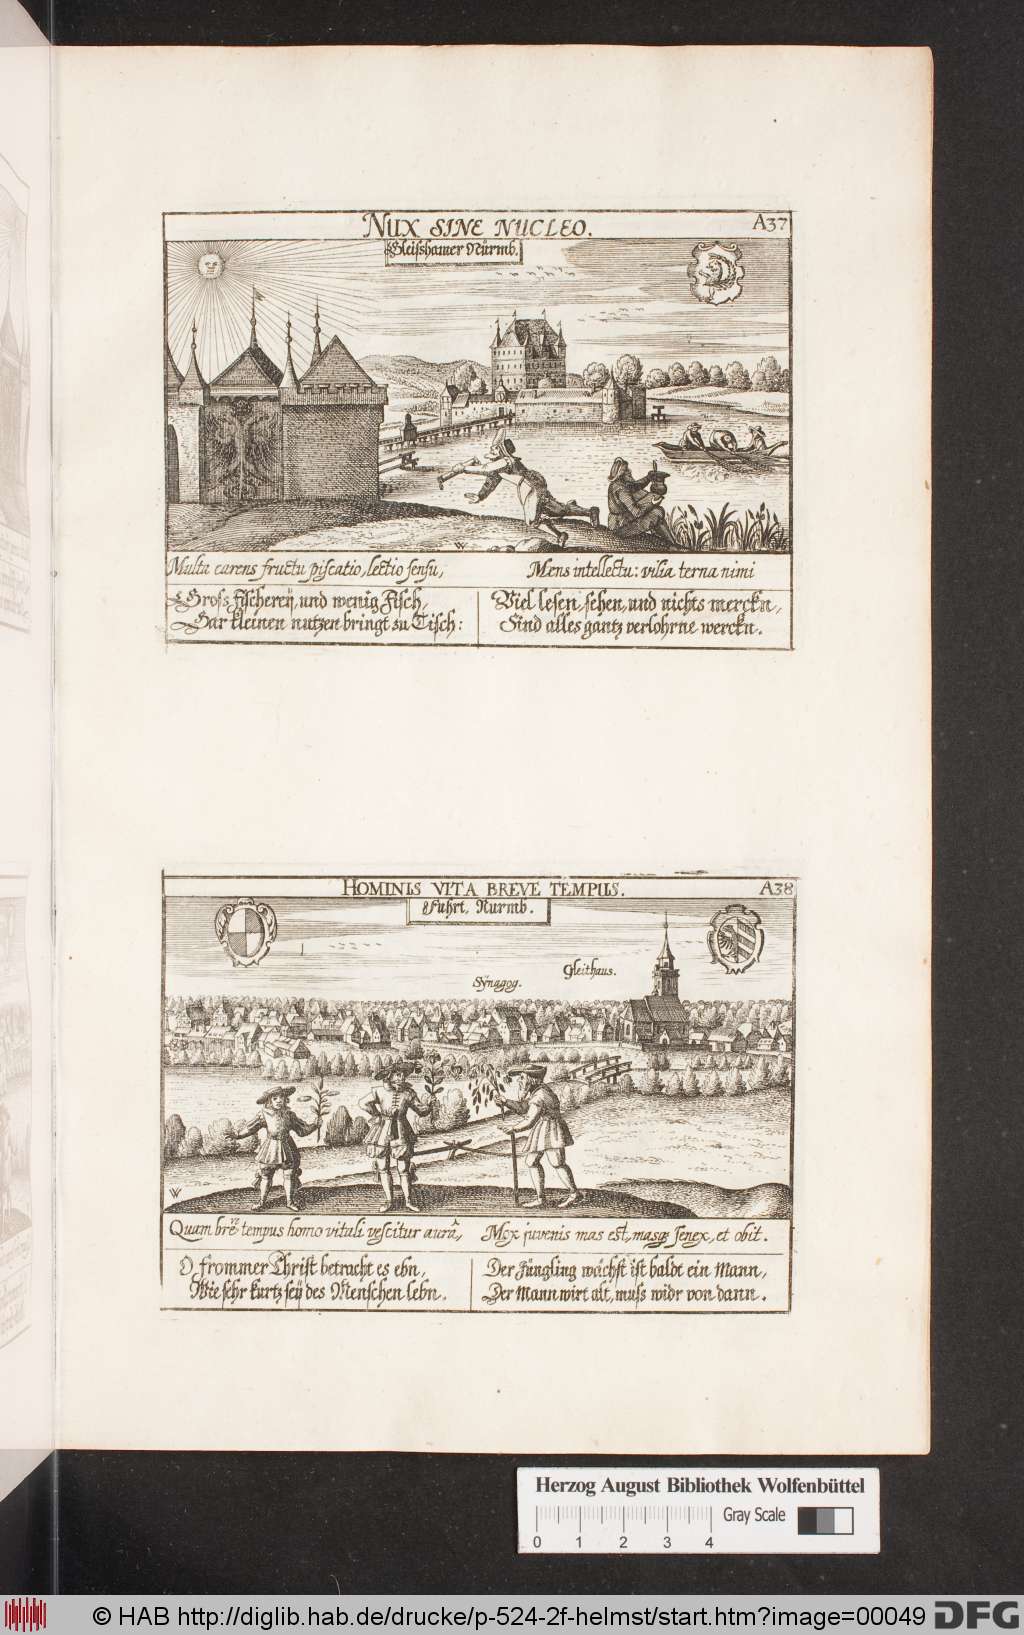 NUX SINE NUCLEO.
A37
Gleisshamer Nürmb.
W
Multa carens fructu piscatio, lectio sensu,
Mens intellectu: vilia terna nimi
Gross fischereÿ, und wenig Fisch,
Gar kleinen nutzen bringt zu Tisch:
Viel lesen, sehen, und nichts merckn,
Sind alles gantz verlohrne werckn.
HOMINIS VITA BREVE TEMPUS.
A38
Fuhrt, Nurmb.
Sÿnagog.
Gleithaus.
W
Quam breve tempus homo vitali vescitur aurâ,
Mox juvenis mas est, masq; senex, et obit.
O frommer Christ betracht es ebn,
Wie sehr kurtz seÿ des Menschen lebn.
Der Jüngling wächst ist baldt ein Mann,
Der Mann wirt alt, muss widr von dann.
Herzog August Bibliothek Wolfenbüttel
Gray Scale
0 1 2 3 4
© HAB http://diglib.hab.de/drucke/p-524-2f-helmst/start.htm?image=00049
DFG